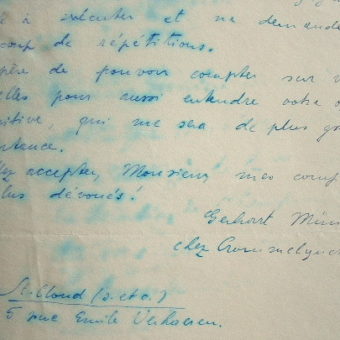 à exécuter et ne demande
coup de répétitions.
père de pouvoir compter sur v
elles pour aussi entendre votre o
itive, qui me sea de plus g
ortance.
ez accepter, Monsieur, mes comp
lus dévoués!
Gerhart
chez Crommelynck
St. Cloud (S. et O.)
5 rue Emile Verhaeren.